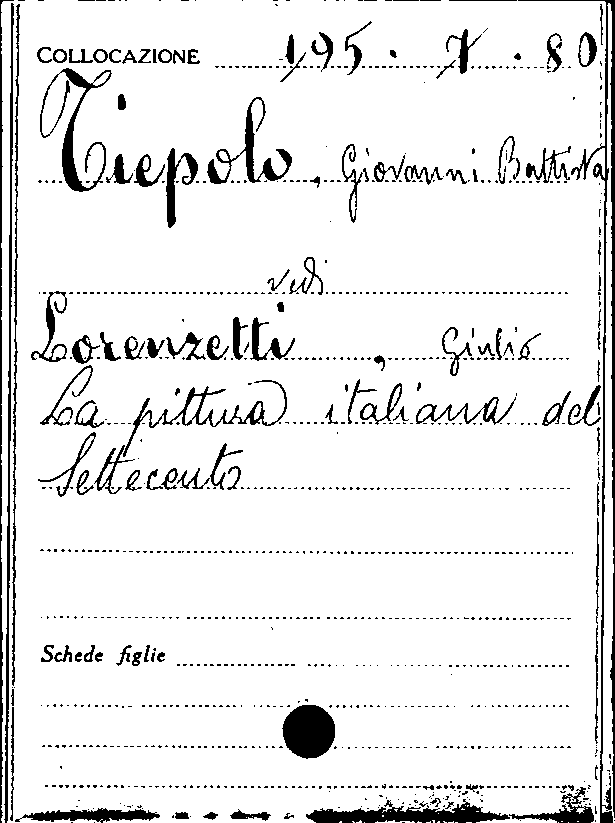 COLLOCAZIONE 195. 7. 80
Tiepolo, Giovanni Battista
vedi
Lorenzetti, Giulio
La pittura italiana del
Settecento
Schede figlie